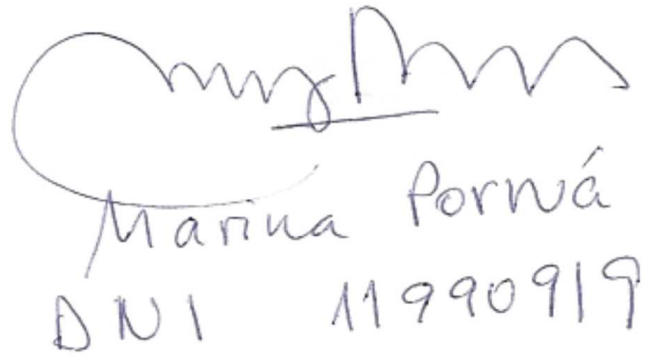 Marina Porwá
DNI 11990919